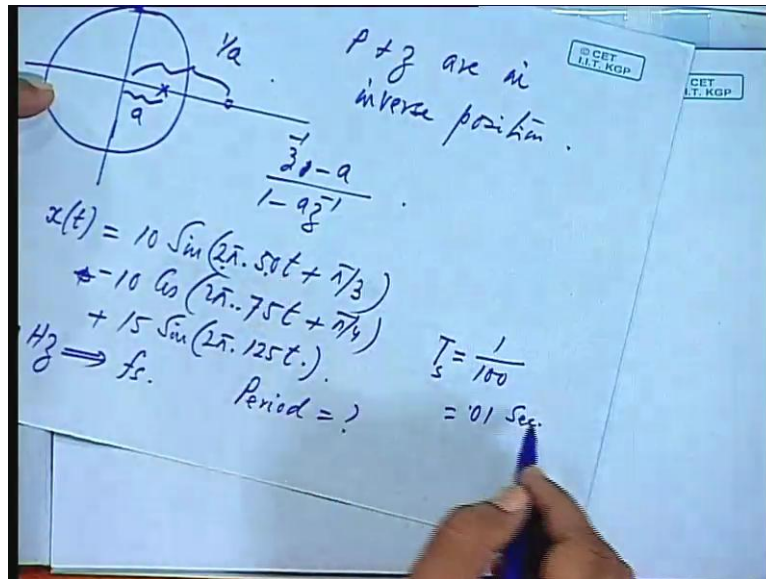 1/a
a
P & z are in
inverse position.
© CET
I.I.T. KGP
CET
I.T. KGP
z⁻¹ - a
1 - az⁻¹
x(t) = 10 Sin(2π.50t + π/3)
-10 Cos(2π.75t + π/4)
+ 15 Sin(2π.125t.).
Hz ⟹ fs.
Period = ?
Ts = 1/100
= .01 Sec.